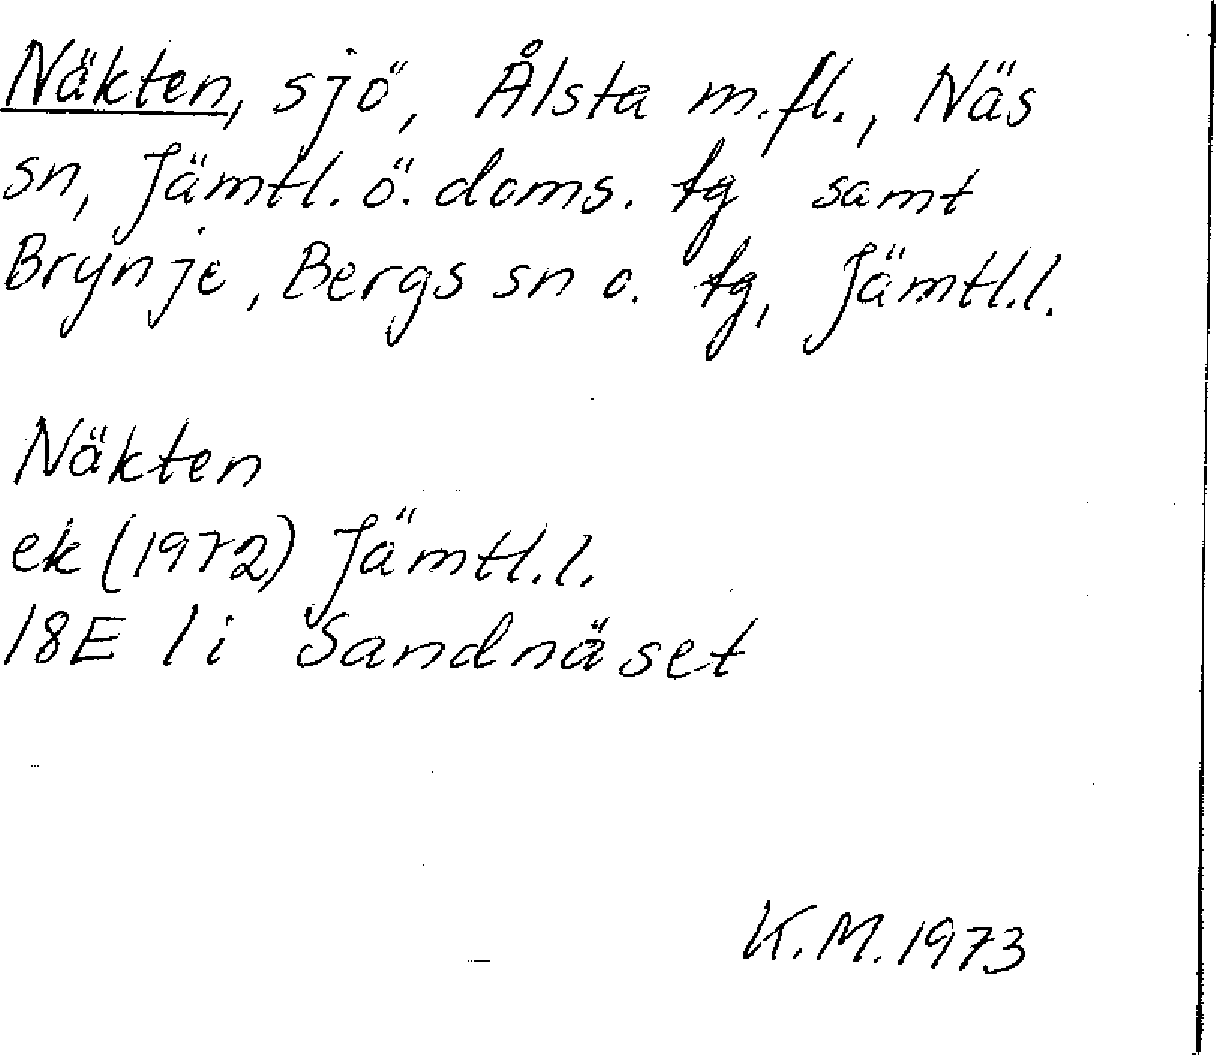 Näkten, sjö, Ålsta m.fl., Näs
sn, Jämtl. ö. doms. tg samt
Brynje, Bergs sn o. tg, Jämtl.l.
Näkten
ek (1972) Jämtl.l.
18E 1i Sandnäset
K.M. 1973